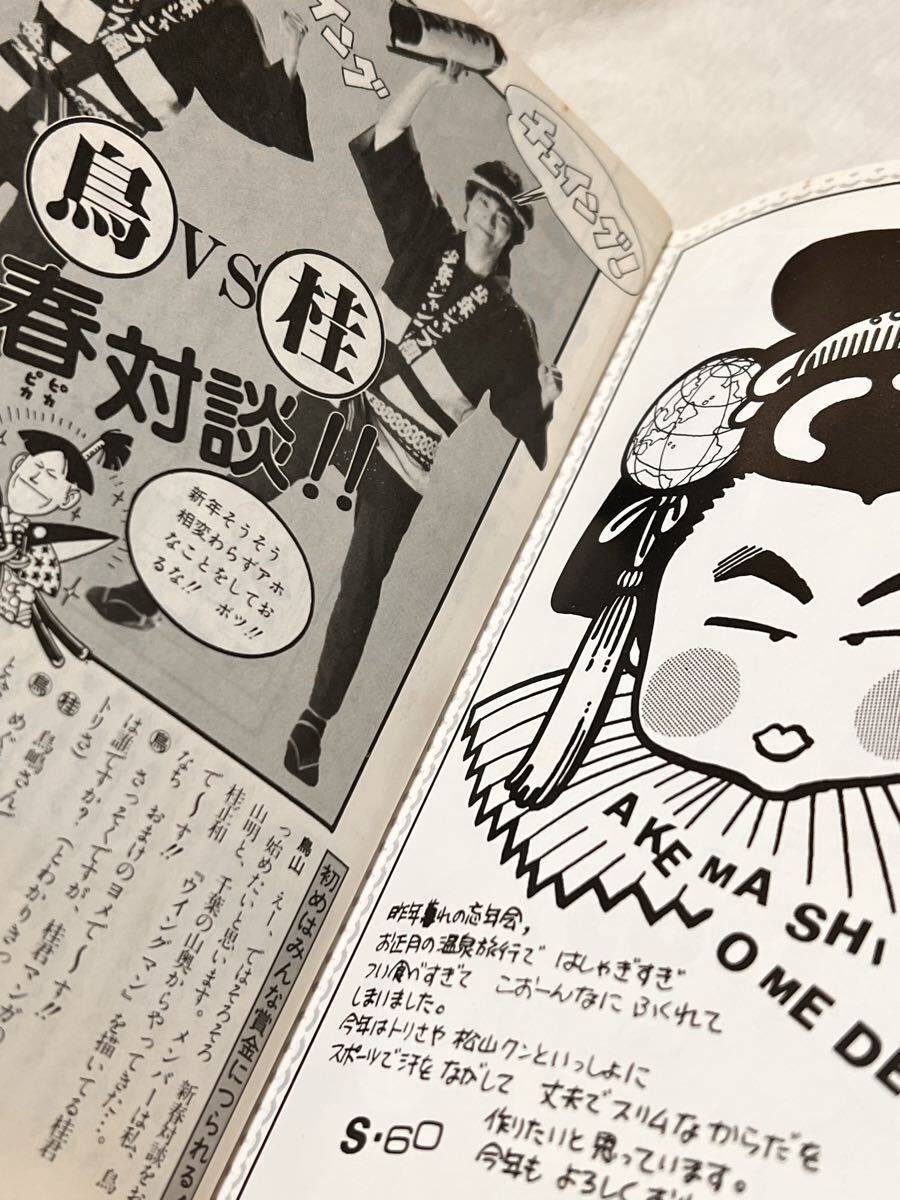 イング
チェイング!
少年ジャンプ
少年ジャンプ
鳥VS桂
春対談!!
ピカ
ピカ
新年そうそう
相変わらずアホ
なことをしてお
るな!! ボツ!!
初めはみんな賞金につられる
鳥山 えー、ではそろそろ 新春対談をお
っ始めたいと思います。メンバーは私、鳥
山明と、千葉の山奥からやってきた…。
桂正和 『ウイングマン』を描いてる桂君
で〜す!!
なち おまけのヨメで〜す!!
鳥 さっそくですが、桂君マンガの
は誰ですか? (とわかりきっ
トリさ)
桂 鳥嶋さん
鳥 めぐ
AKEMASHI
OMEDE
昨年暮れの忘年会,
お正月の温泉旅行で はしゃぎすぎ
つい食べすぎて こおーんなに ふくれて
しまいました。
今年はトリさや 松山クンといっしょに
スポールで汗を ながして 丈夫でスリムなからだを
作りたいと思っています。
今年も よろしく
S・60